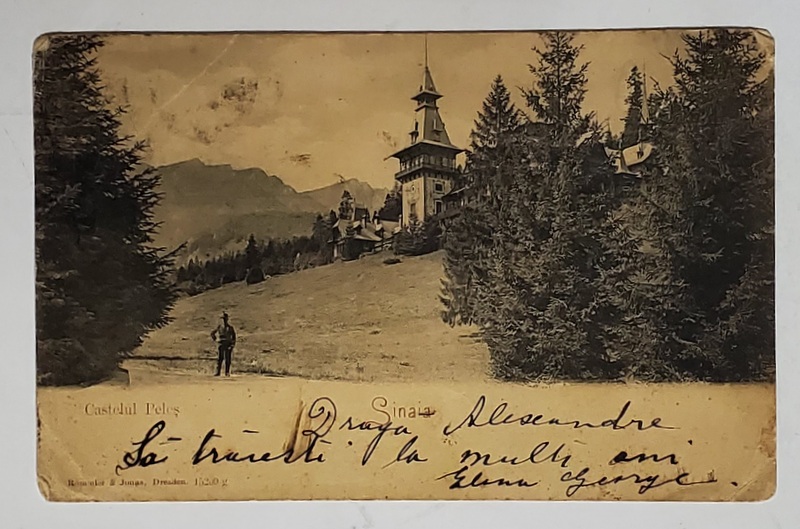 Castelul Peleș
Sinaia
Draga Alexandre
Să trăesti la mulți ani
Elena George.
Römmler & Jonas, Dresden.